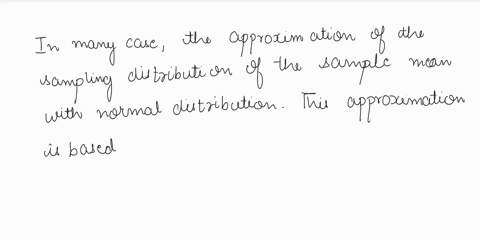 In many case, the approximation of the
sampling distribution of the sample mean
with normal distribution. This approximation
is based